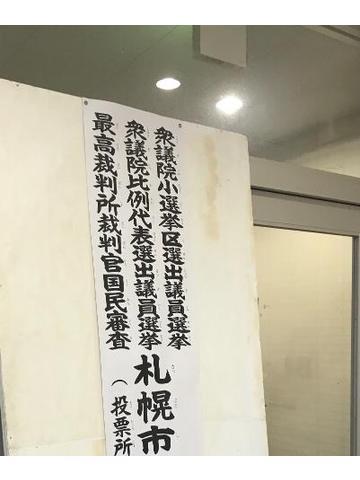 衆議院小選挙区選出議員選挙
衆議院比例代表選出議員選挙
最高裁判所裁判官国民審査
札幌市
（投票所